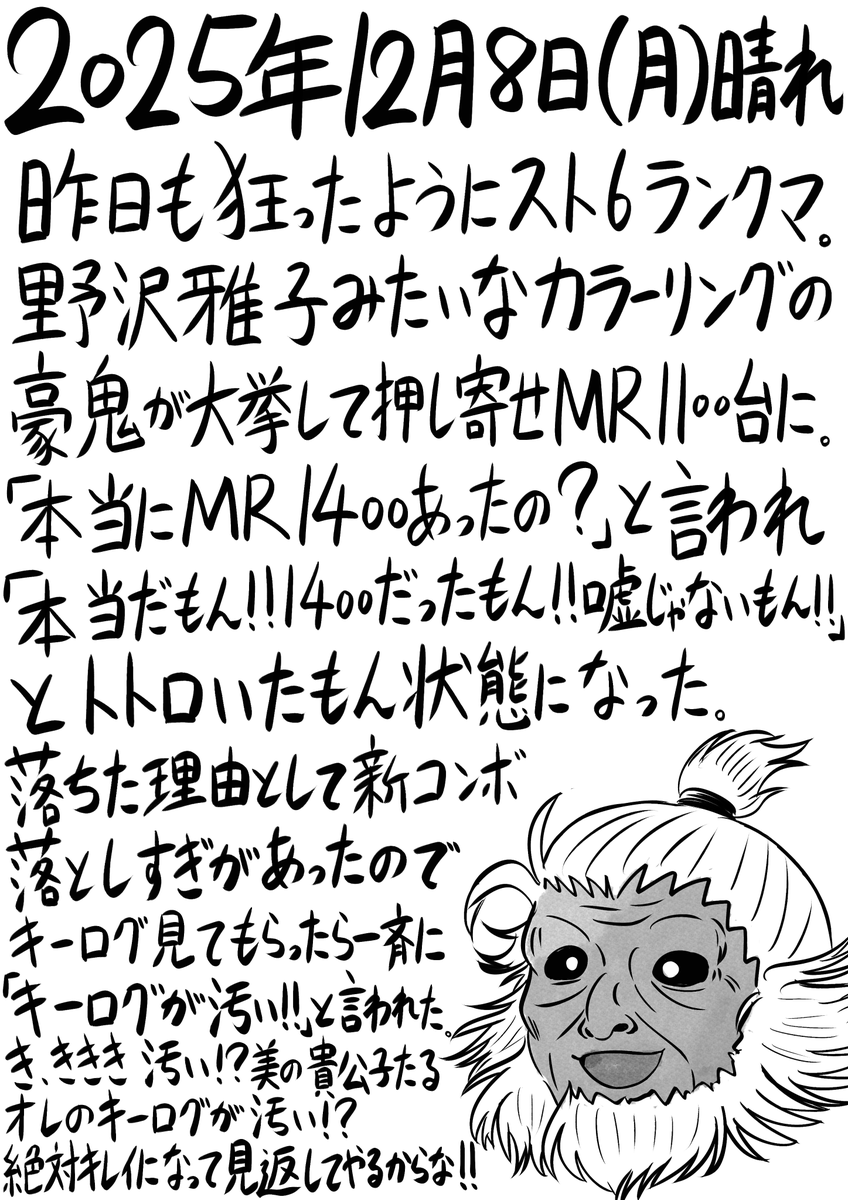 2025年12月8日(月)晴れ
昨日も狂ったようにスト6ランクマ。
野沢雅子みたいなカラーリングの
豪鬼が大挙して押し寄せMR1100台に。
「本当にMR1400あったの?」と言われ
「本当だもん!!1400だったもん!!嘘じゃないもん!!」
とトトロいたもん状態になった。
落ちた理由として新コンボ
落としすぎがあったので
キーログ見てもらったら一斉に
「キーログが汚い!!」と言われた。
き、ききき 汚い!?美の貴公子たる
オレのキーログが汚い!?
絶対キレイになって見返してやるからな!!